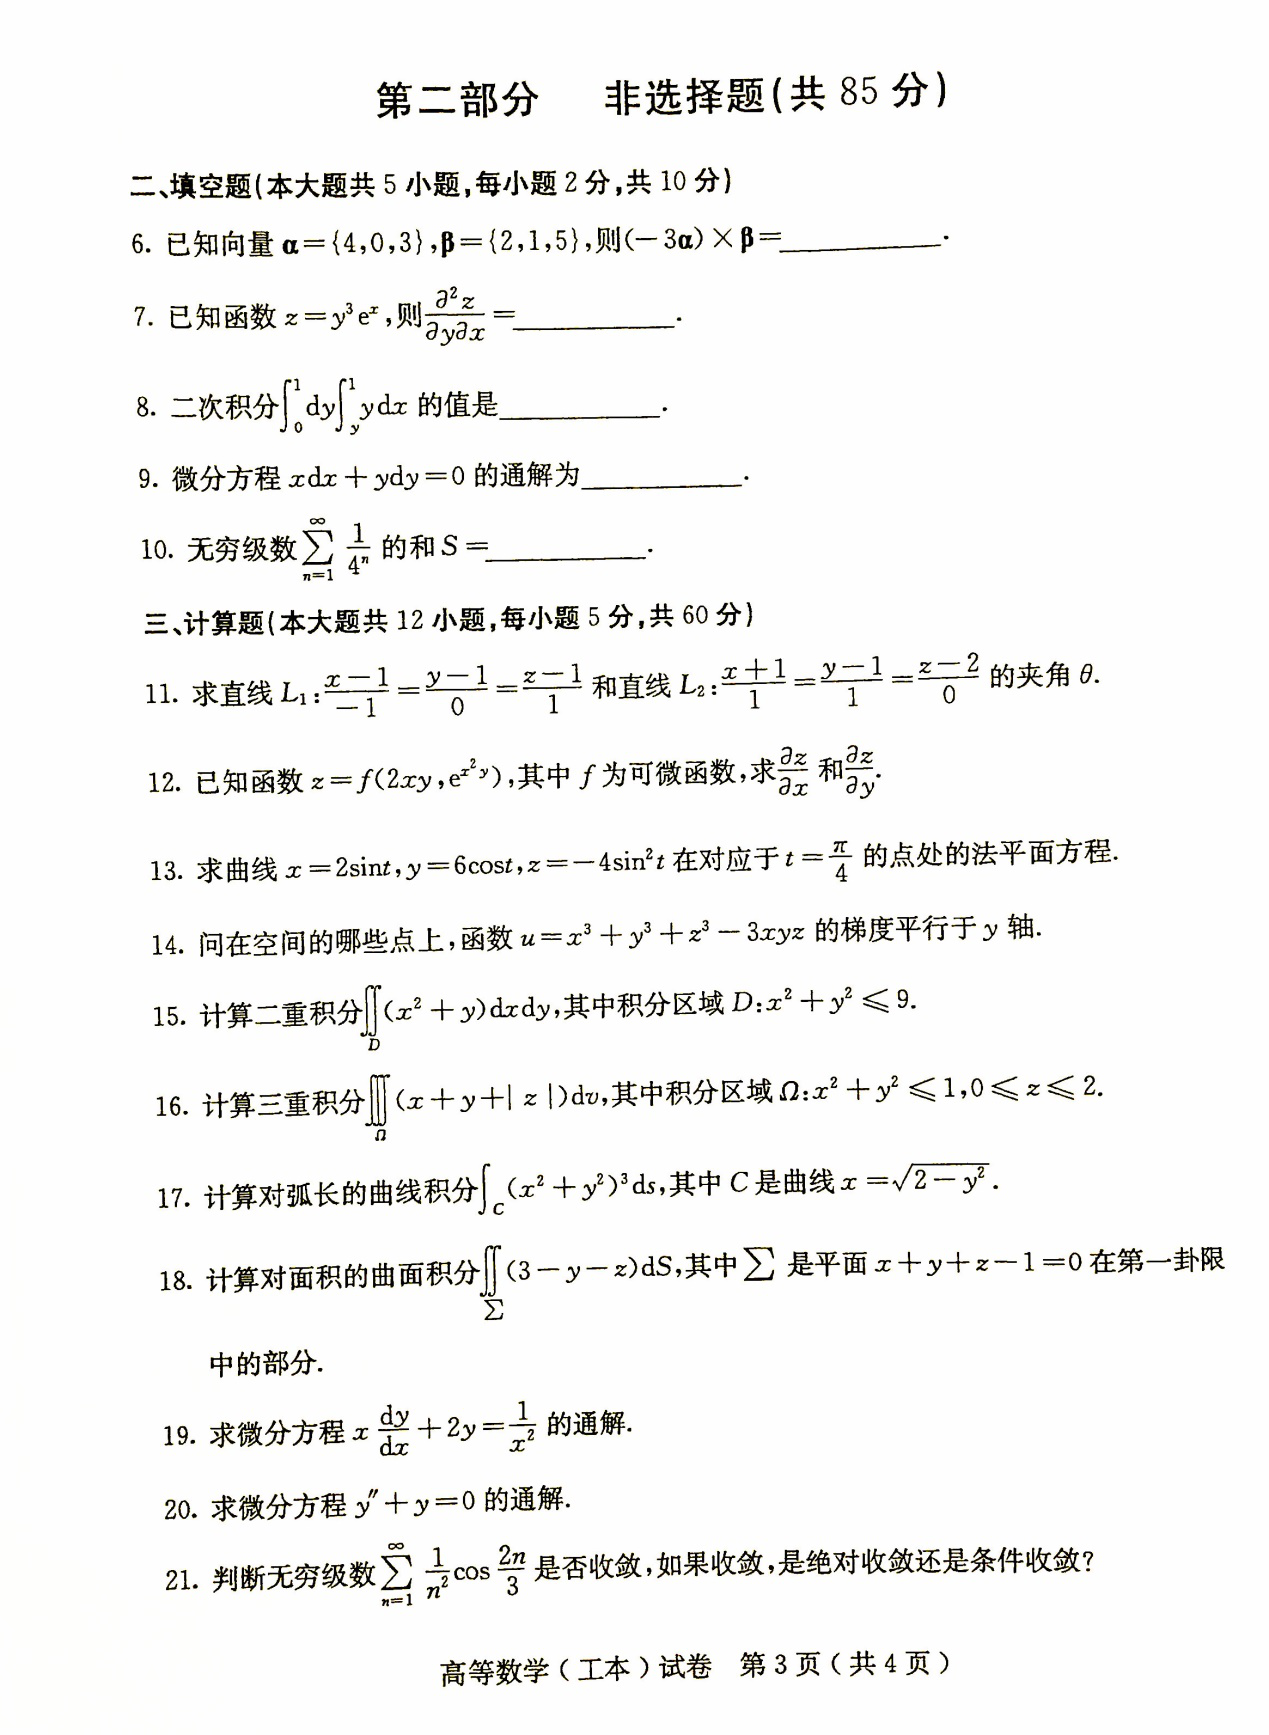 第二部分 非选择题(共 85 分)
二、填空题(本大题共 5 小题,每小题 2 分,共 10 分)
6. 已知向量 α={4,0,3},β={2,1,5},则(-3α)×β=__________.
7. 已知函数 z=y³eˣ,则∂²z/∂y∂x=__________.
8. 二次积分∫₀¹dy∫_y¹ydx 的值是__________.
9. 微分方程 xdx+ydy=0 的通解为__________.
10. 无穷级数∑_{n=1}^{∞} 1/4ⁿ 的和 S=__________.
三、计算题(本大题共 12 小题,每小题 5 分,共 60 分)
11. 求直线 L₁:(x-1)/(-1)=(y-1)/0=(z-1)/1 和直线 L₂:(x+1)/1=(y-1)/1=(z-2)/0 的夹角 θ.
12. 已知函数 z=f(2xy,e^{x²y}),其中 f 为可微函数,求∂z/∂x 和∂z/∂y.
13. 求曲线 x=2sint,y=6cost,z=-4sin²t 在对应于 t=π/4 的点处的法平面方程.
14. 问在空间的哪些点上,函数 u=x³+y³+z³-3xyz 的梯度平行于 y 轴.
15. 计算二重积分∬_D(x²+y)dxdy,其中积分区域 D:x²+y²≤9.
16. 计算三重积分∭_Ω(x+y+|z|)dv,其中积分区域 Ω:x²+y²≤1,0≤z≤2.
17. 计算对弧长的曲线积分∫_C(x²+y²)³ds,其中 C 是曲线 x=√(2-y²).
18. 计算对面积的曲面积分∬_∑(3-y-z)dS,其中∑ 是平面 x+y+z-1=0 在第一卦限
中的部分.
19. 求微分方程 x dy/dx+2y=1/x² 的通解.
20. 求微分方程 y″+y=0 的通解.
21. 判断无穷级数∑_{n=1}^{∞} 1/n² cos 2n/3 是否收敛,如果收敛,是绝对收敛还是条件收敛?
高等数学(工本)试卷 第 3 页(共 4 页)